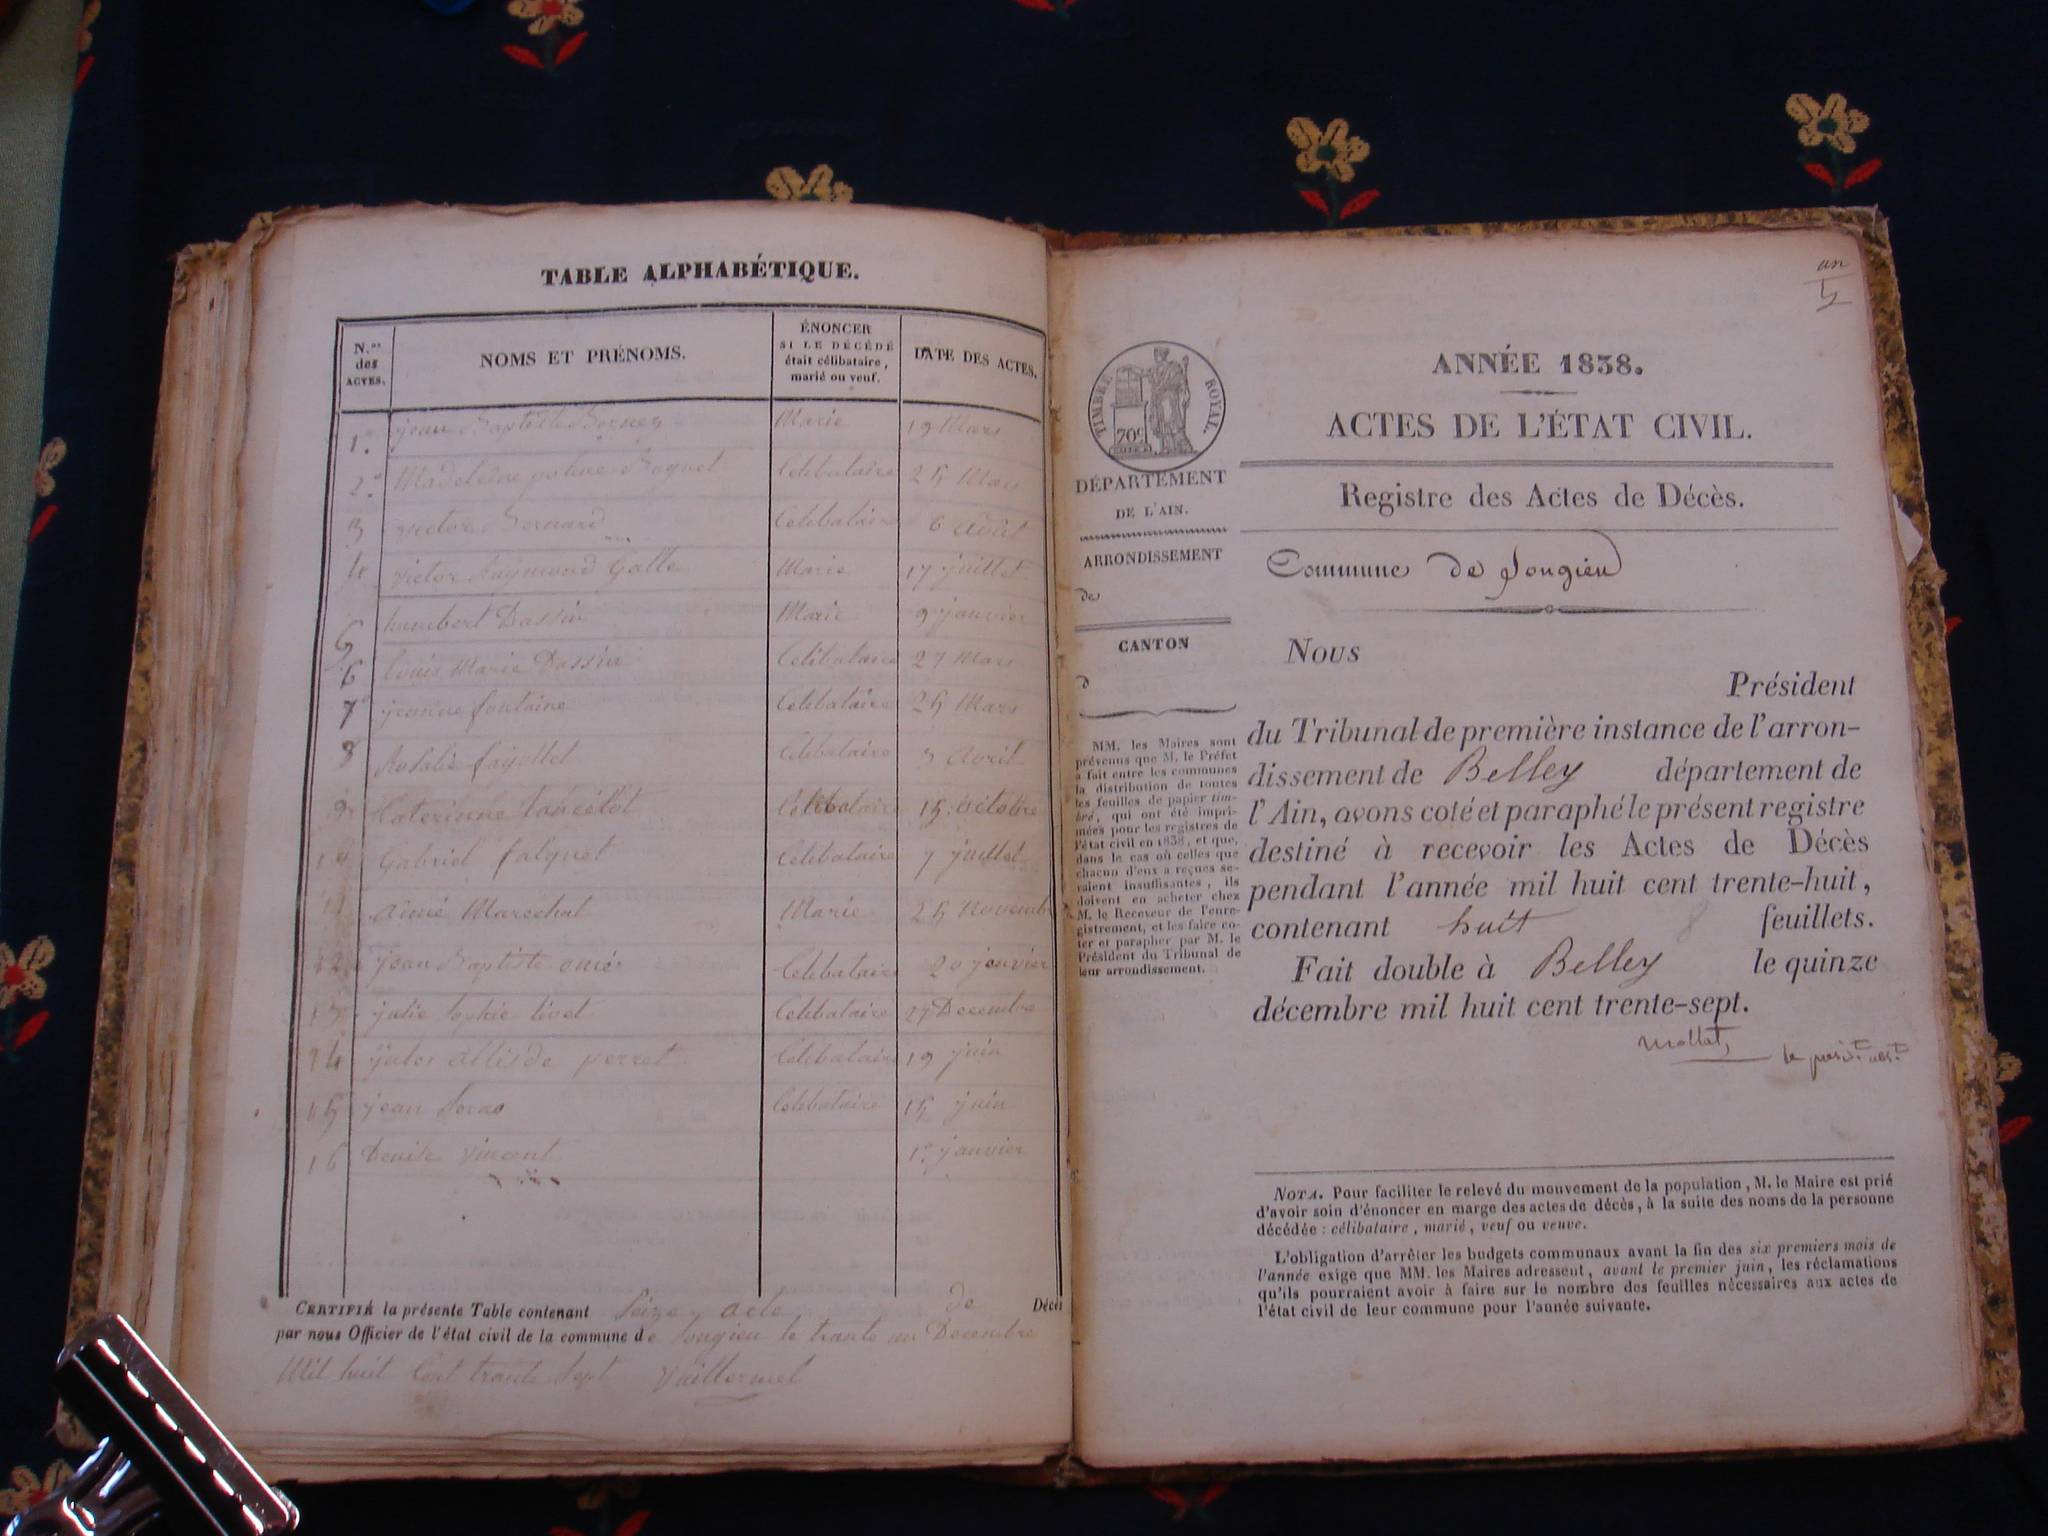 TABLE ALPHABÉTIQUE.
N.os des ACTES.
NOMS ET PRÉNOMS.
ÉNONCER SI LE DÉCÉDÉ était célibataire, marié ou veuf.
DATE DES ACTES.
1. jean Baptiste Marié 19 Mars
2. Madeleine Célibataire 25 Mars
3 victor Bernard Célibataire 6 août
4 victor Raymond Marié 17 juillet
5 humbert Dassin Marié 9 janvier
6 louis Marie Dassin Célibataire 27 Mars
7 fontaine Célibataire 25 Mars
8 Célibataire avril
9 lancelot Célibataire 15 octobre
10 Gabriel falquet Célibataire 7 juillet
11 aimé Marechal Marié 25 novembre
12 jean Baptiste Célibataire 20 janvier
13 julie Sophie Célibataire 27 Decembre
14 perret Célibataire 19 juin
15 jean Célibataire 15 juin
16 vincent janvier
CERTIFIÉ la présente Table contenant Seize acte de Décès
par nous Officier de l'état civil de la commune de Jongieu le trante un Decembre
Mil huit Cent trante Sept
un
ANNÉE 1838.
ACTES DE L'ÉTAT CIVIL.
Registre des Actes de Décès.
Commune de Jongieu
TIMBRE ROYAL.
70c
DÉPARTEMENT
DE L'AIN.
ARRONDISSEMENT
de
CANTON
d
MM. les Maires sont
prévenus que M. le Préfet
a fait entre les communes
la distribution de toutes
les feuilles de papier tim-
bré, qui ont été impri-
mées pour les registres de
l'état civil en 1838, et que,
dans le cas où celles que
chacun d'eux a reçues se-
raient insuffisantes, ils
doivent en acheter chez
M. le Receveur de l'enre-
gistrement, et les faire co-
ter et parapher par M. le
Président du Tribunal de
leur arrondissement.
Nous
Président
du Tribunal de première instance de l'arron-
dissement de Belley département de
l'Ain, avons coté et paraphé le présent registre
destiné à recevoir les Actes de Décès
pendant l'année mil huit cent trente-huit,
contenant huit 8 feuillets.
Fait double à Belley le quinze
décembre mil huit cent trente-sept.
NOTA. Pour faciliter le relevé du mouvement de la population, M. le Maire est prié
d'avoir soin d'énoncer en marge des actes de décès, à la suite des noms de la personne
décédée : célibataire, marié, veuf ou veuve.
L'obligation d'arrêter les budgets communaux avant la fin des six premiers mois de
l'année exige que MM. les Maires adressent, avant le premier juin, les réclamations
qu'ils pourraient avoir à faire sur le nombre des feuilles nécessaires aux actes de
l'état civil de leur commune pour l'année suivante.